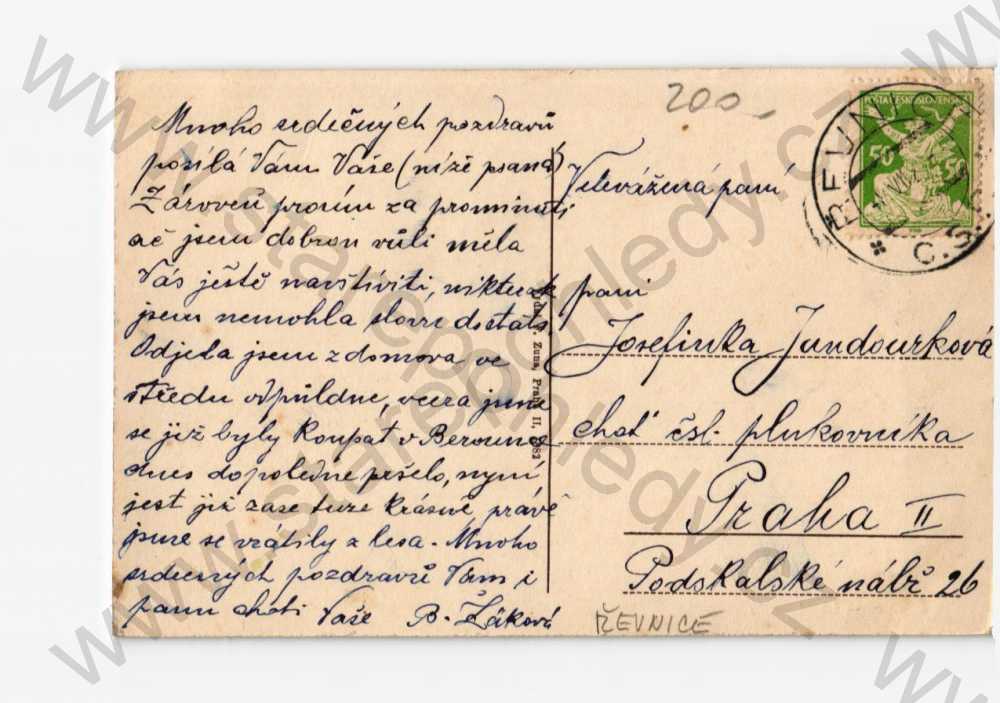 200,-
Mnoho srdečných pozdravů
posílá Vám Vaše (níže psaná)
Zároveň prosím za prominutí
ač jsem dobrou vůli měla
Vás ještě navštíviti, nikterak
jsem nemohla slovu dostáti.
Odjela jsem z domova ve
středu odpůldne, včera jsme
se již byly koupat v Berounce
dnes dopoledne pršelo, nyní
jest již zase tuze krásně, právě
jsme se vrátily z lesa. Mnoho
srdečných pozdravů Vám i
panu choti Vaše B. Žáková
Zuna, Praha II,
Velevážená paní
paní
Josefinka Jandourková
choť čsl. plukovníka
Praha II
Podskalské nábř 26
ŘEVNICE
POSTA ČESKOSLOVENSKÁ
50 50
www.starepohledy.cz